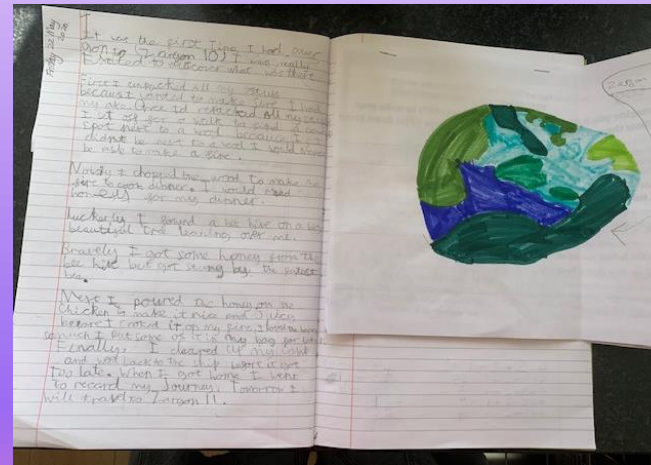 Friday 22 May
It was the first time I had ever
gon to Zargon 10, I was really
Exsited to discover what was there
First I unpacked All my stuss
because I wanted to make sure I had
my axe. Once I'd repacked All my
I set off for a walk to find a camp
spot next to a wood because if I
didn't be next to a wood I would
be not to make a fire.
Noisily I chopped the wood to make the
fire to cook dinner. I would need
for my dinner.
Luckerly I found a bee hive on a
beautiful tree leaning over me.
Bravely I got some honey from the
bee hive but got stung by the
bee.
Next I poured the honey on the
Chicken to make it nice and Juicy
before I cooked it on my fire, I loved the honey
so much I put some of it in my bag for
Finally, I cleared up my camp
and went back to the ship before it got
too late. When I got home I went
to record my Journey. Tomorrow I
will travel to Zargon 11.